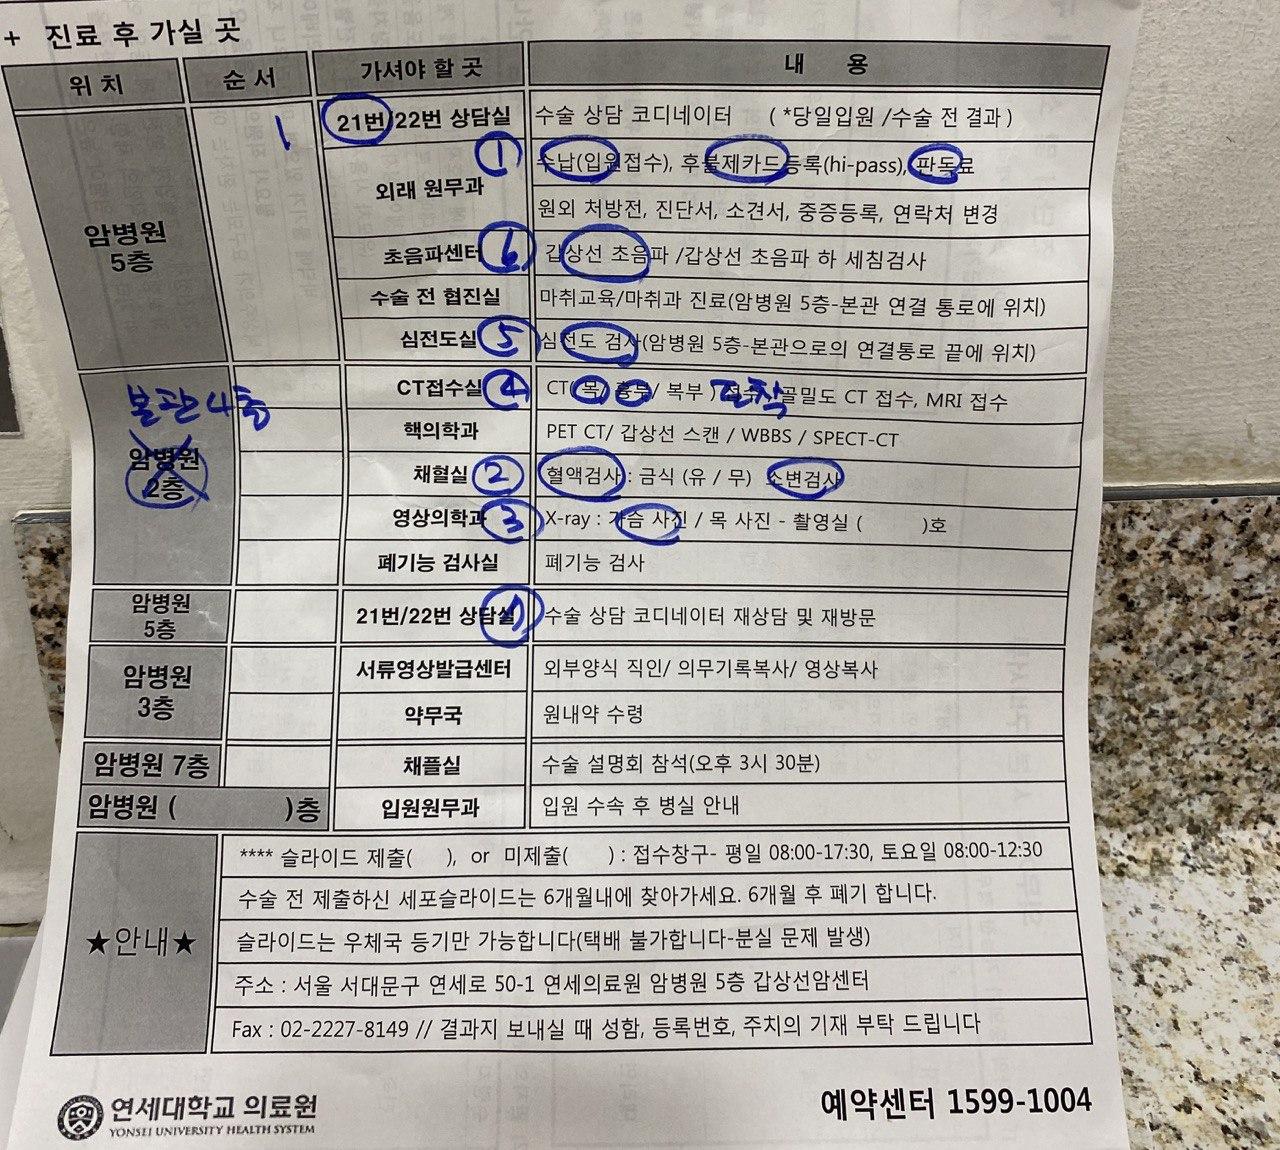 + 진료 후 가실 곳
위 치 순 서 가셔야 할 곳 내 용
암병원 5층
1 21번/22번 상담실 수술 상담 코디네이터 ( *당일입원 /수술 전 결과 )
외래 원무과 ① 수납(입원접수), 후불제카드 등록(hi-pass), 판독료
원외 처방전, 진단서, 소견서, 중증등록, 연락처 변경
초음파센터 ⑥ 갑상선 초음파 /갑상선 초음파 하 세침검사
수술 전 협진실 마취교육/마취과 진료(암병원 5층-본관 연결 통로에 위치)
심전도실 ⑤ 심전도 검사(암병원 5층-본관으로의 연결통로 끝에 위치)
본관 4층
암병원 2층
CT접수실 ④ CT( 목/ 흉부/ 복부 ) 골밀도 CT 접수, MRI 접수
핵의학과 PET CT/ 갑상선 스캔 / WBBS / SPECT-CT
채혈실 ② 혈액검사 : 금식 (유 / 무) 소변검사
영상의학과 ③ X-ray : 가슴 사진 / 목 사진 - 촬영실 ( )호
폐기능 검사실 폐기능 검사
암병원 5층
21번/22번 상담실 ⑦ 수술 상담 코디네이터 재상담 및 재방문
암병원 3층
서류영상발급센터 외부양식 직인/ 의무기록복사/ 영상복사
약무국 원내약 수령
암병원 7층 채플실 수술 설명회 참석(오후 3시 30분)
암병원 ( )층 입원원무과 입원 수속 후 병실 안내
★안내★
**** 슬라이드 제출( ), or 미제출( ) : 접수창구- 평일 08:00-17:30, 토요일 08:00-12:30
수술 전 제출하신 세포슬라이드는 6개월내에 찾아가세요. 6개월 후 폐기 합니다.
슬라이드는 우체국 등기만 가능합니다(택배 불가합니다-분실 문제 발생)
주소 : 서울 서대문구 연세로 50-1 연세의료원 암병원 5층 갑상선암센터
Fax : 02-2227-8149 // 결과지 보내실 때 성함, 등록번호, 주치의 기재 부탁 드립니다
연세대학교 의료원
YONSEI UNIVERSITY HEALTH SYSTEM
예약센터 1599-1004